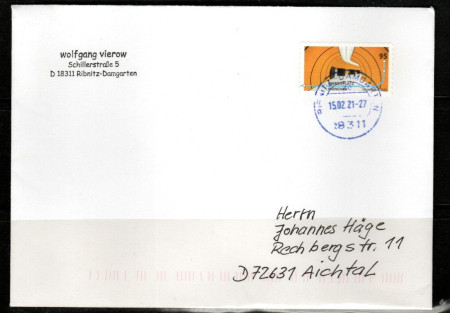 wolfgang vierow
Schillerstraße 5
D 18311 Ribnitz-Damgarten
95
15.02.21-27
18311
Herrn
Johannes Häge
Rechbergstr. 11
D 72631 Aichtal